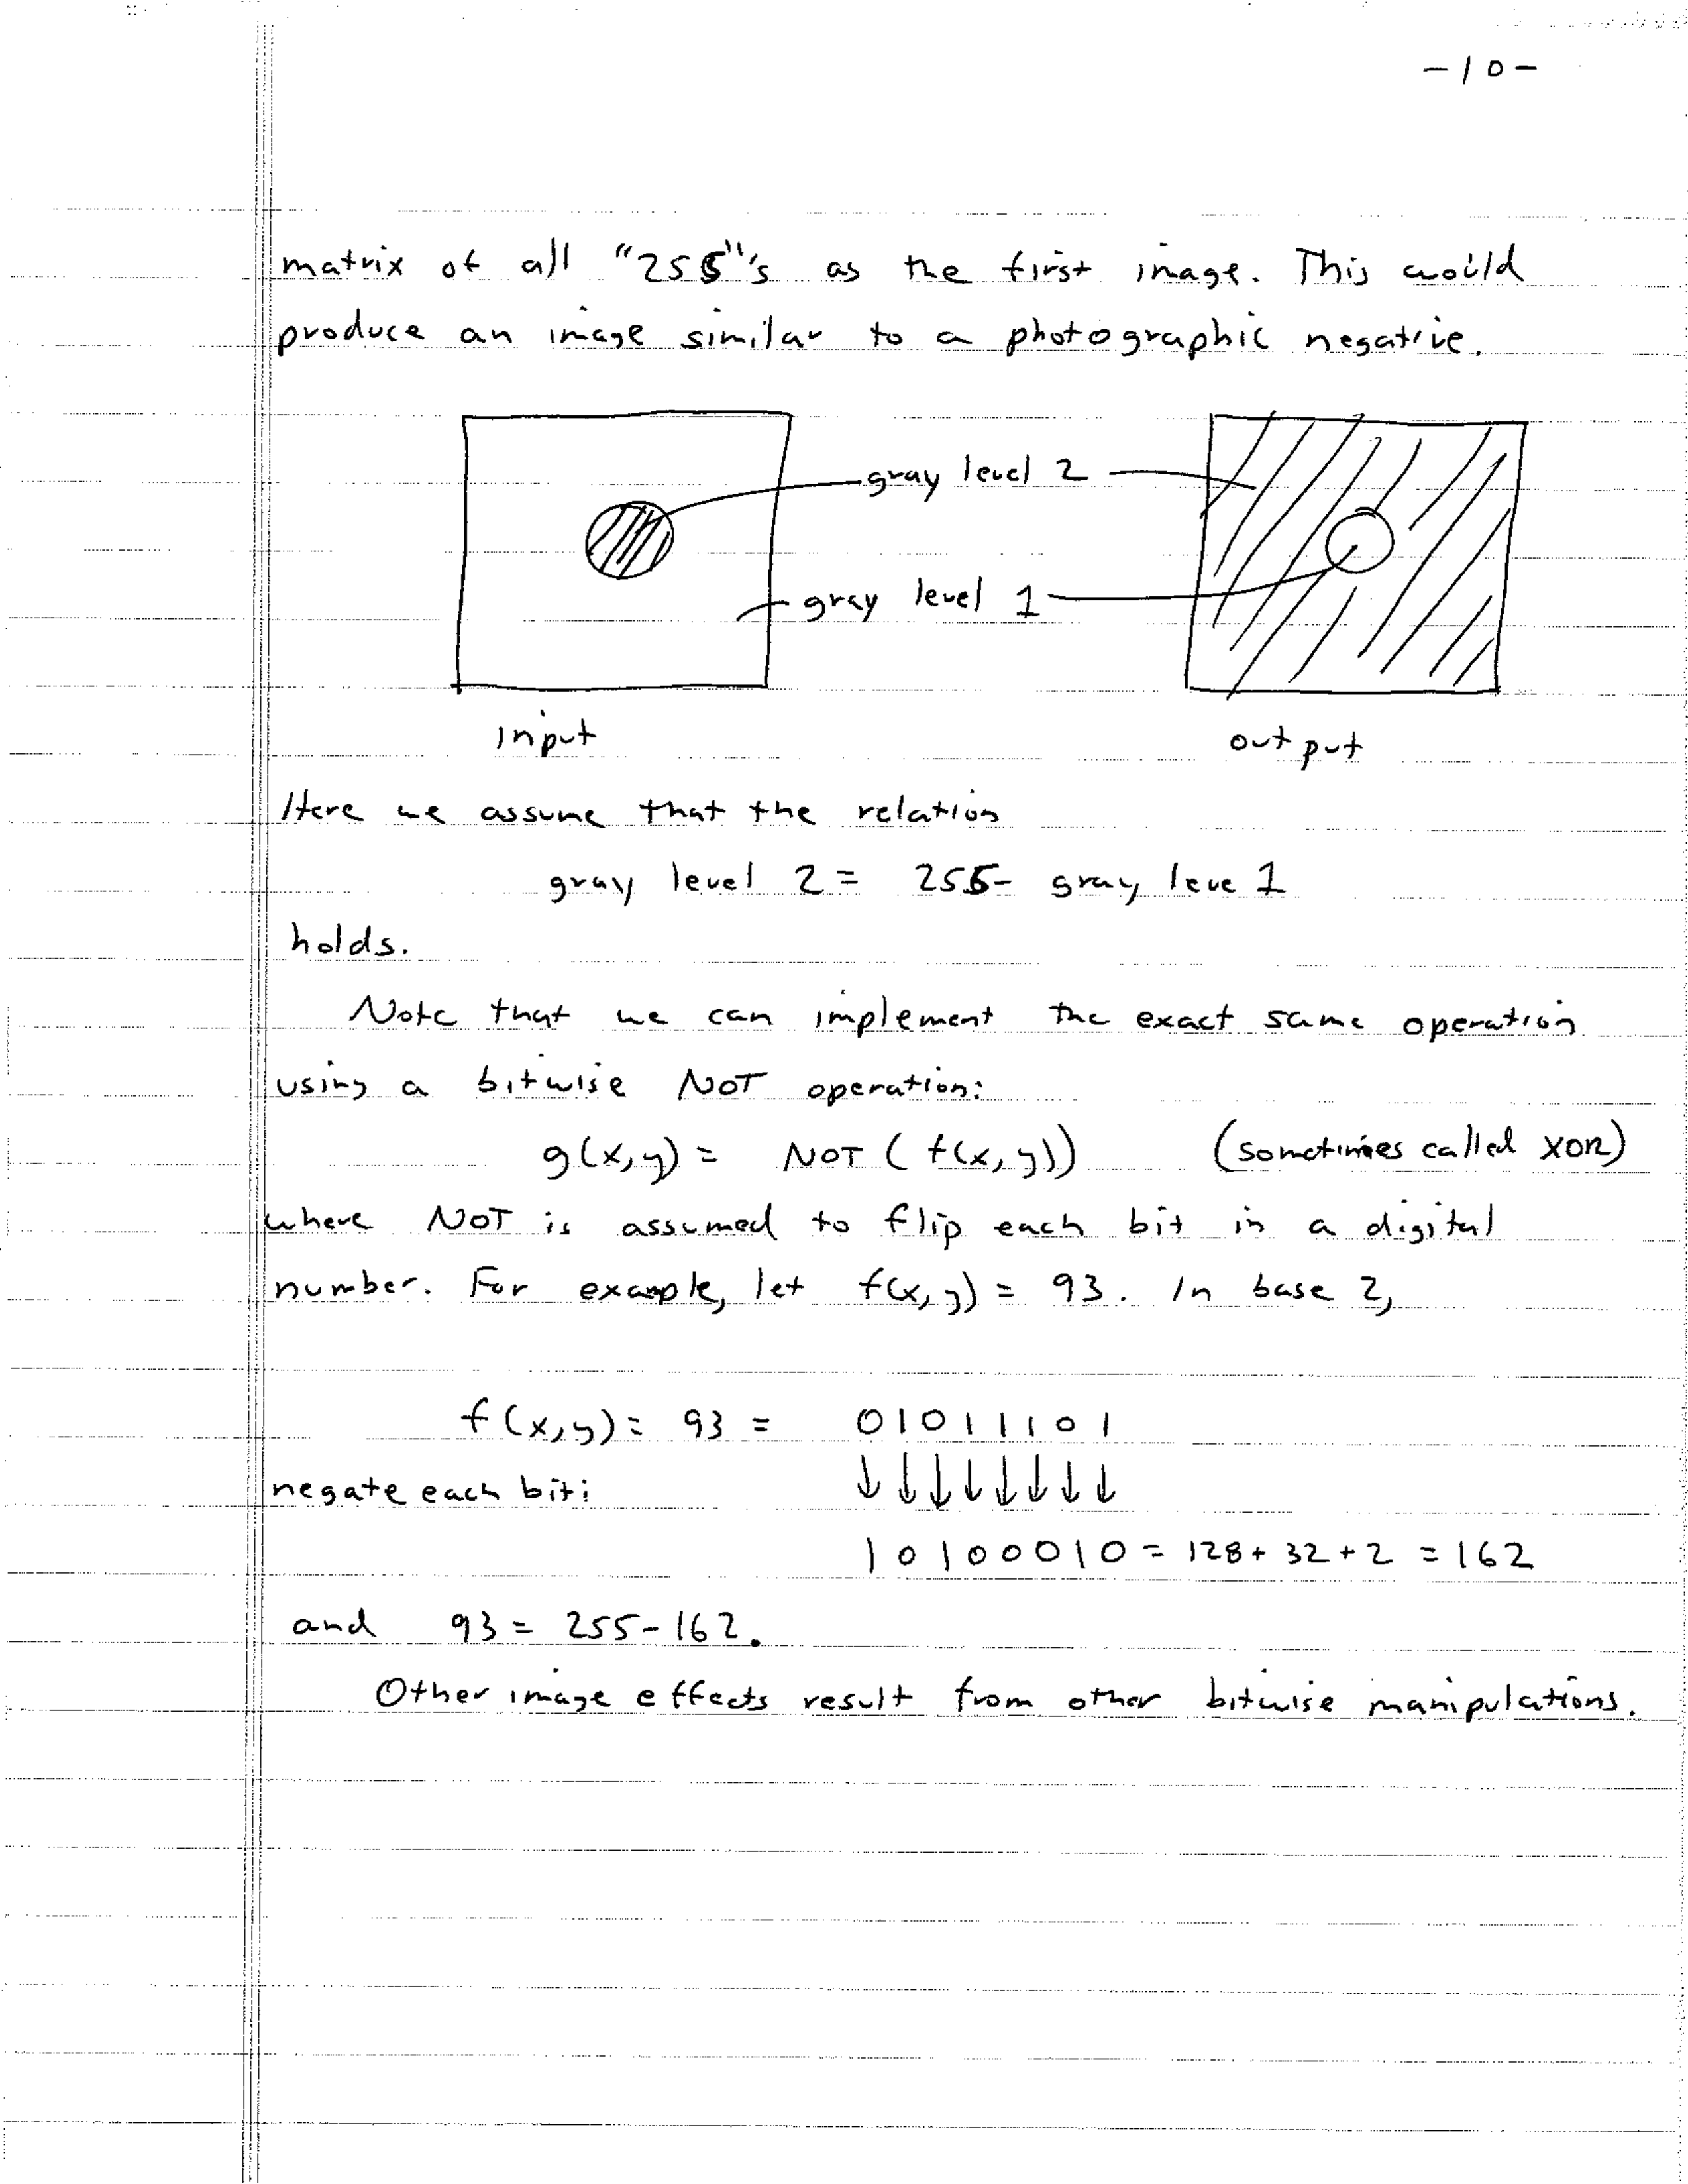 -10-
matrix of all "255"'s as the first image. This would
produce an image similar to a photographic negative.
gray level 2
gray level 1
input
output
Here we assume that the relation
gray level 2 = 255- gray leve 1
holds.
Note that we can implement the exact same operation
using a bitwise NOT operation:
g(x,y) = NOT (f(x,y)) (sometimes called XOR)
where NOT is assumed to flip each bit in a digital
number. For example, let f(x,y) = 93. In base 2,
f(x,y) = 93 = 01011101
negate each bit: ↓↓↓↓↓↓↓↓
10100010 = 128+32+2 = 162
and 93 = 255-162.
Other image effects result from other bitwise manipulations.